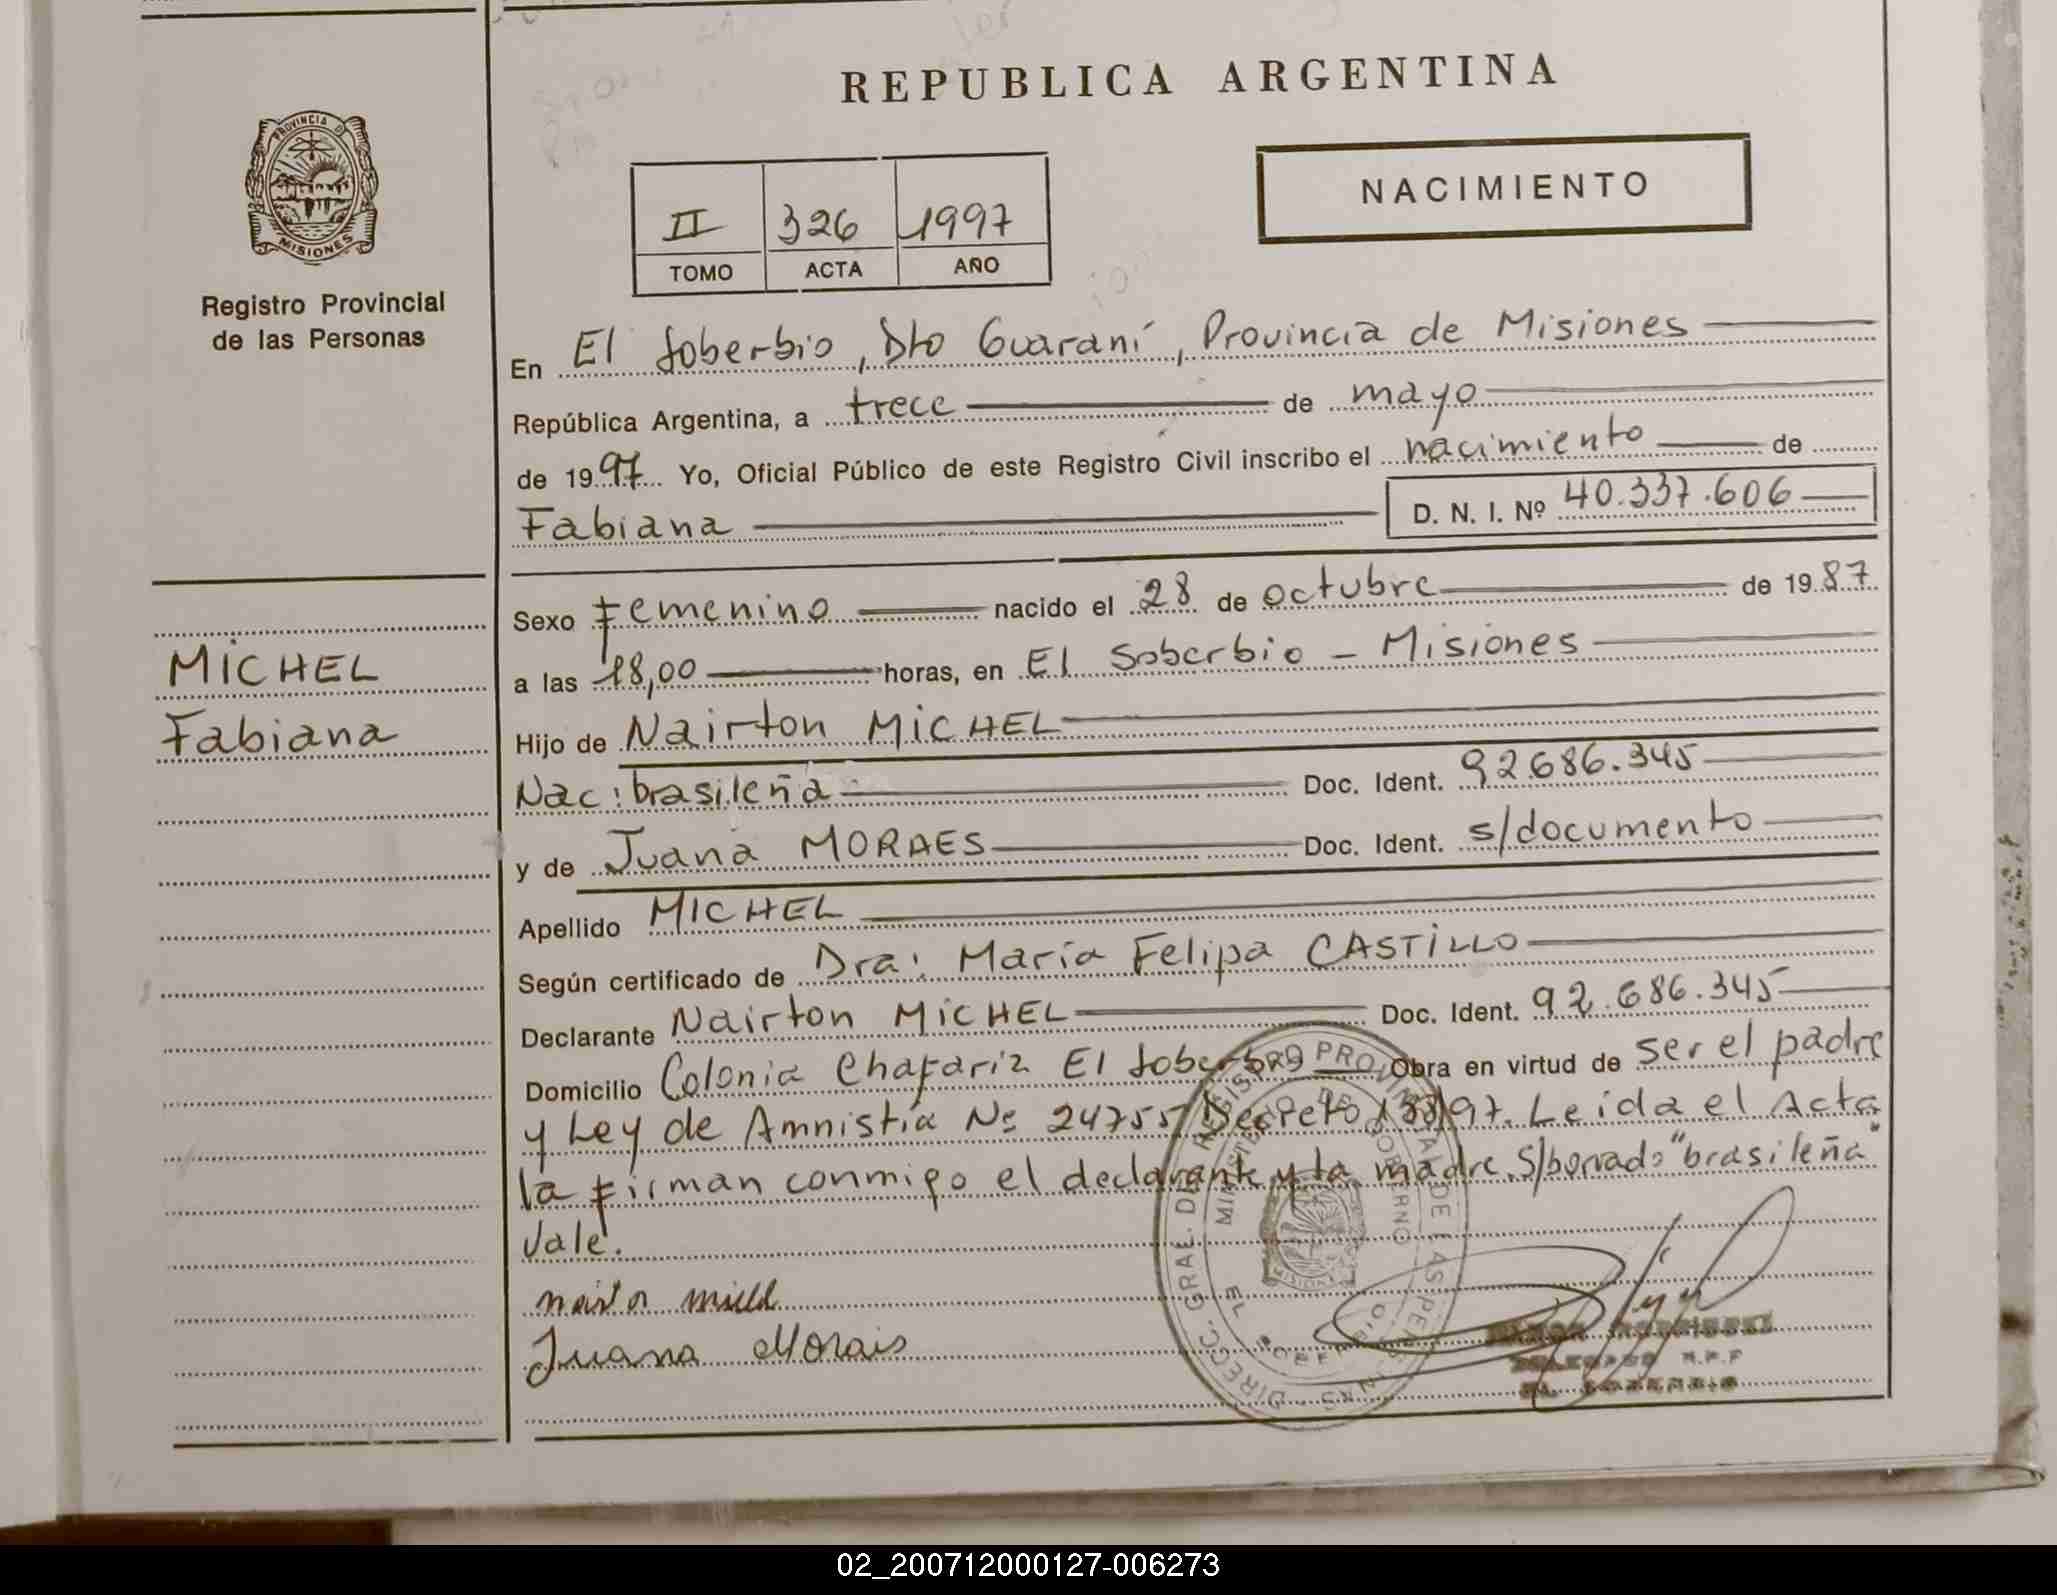 REPUBLICA ARGENTINA
PROVINCIA D
MISIONES
Registro Provincial
de las Personas
NACIMIENTO
II 326 1997
TOMO ACTA AÑO
En El Soberbio, Dto Guaraní, Provincia de Misiones
República Argentina, a trece de mayo
de 1997 Yo, Oficial Público de este Registro Civil inscribo el nacimiento de
Fabiana D. N. I. Nº 40.337.606
Sexo Femenino nacido el 28 de octubre de 1987
MICHEL
Fabiana
a las 18,00 horas, en El Soberbio - Misiones
Hijo de Nairton MICHEL
Nac: brasileña Doc. Ident. 92.686.345
y de Juana MORAES Doc. Ident. s/documento
Apellido MICHEL
Según certificado de Dra: María Felipa CASTILLO
Declarante Nairton MICHEL Doc. Ident. 92.686.345
Domicilio Colonia Chafariz El Soberbio Obra en virtud de ser el padre
y Ley de Amnistía Nº 24755 Decreto 188/97. Leída el Acta
la firman conmigo el declarante y la madre. S/borrado "brasileña"
Vale.
Juana Morais
DIRECC. GRAL. DEL REGISTRO PROVINCIAL DE LAS PERSONAS
MINISTERIO DE GOBIERNO
MISIONES
EL SOBERBIO
R.P.P
EL SOBERBIO
02_200712000127-006273